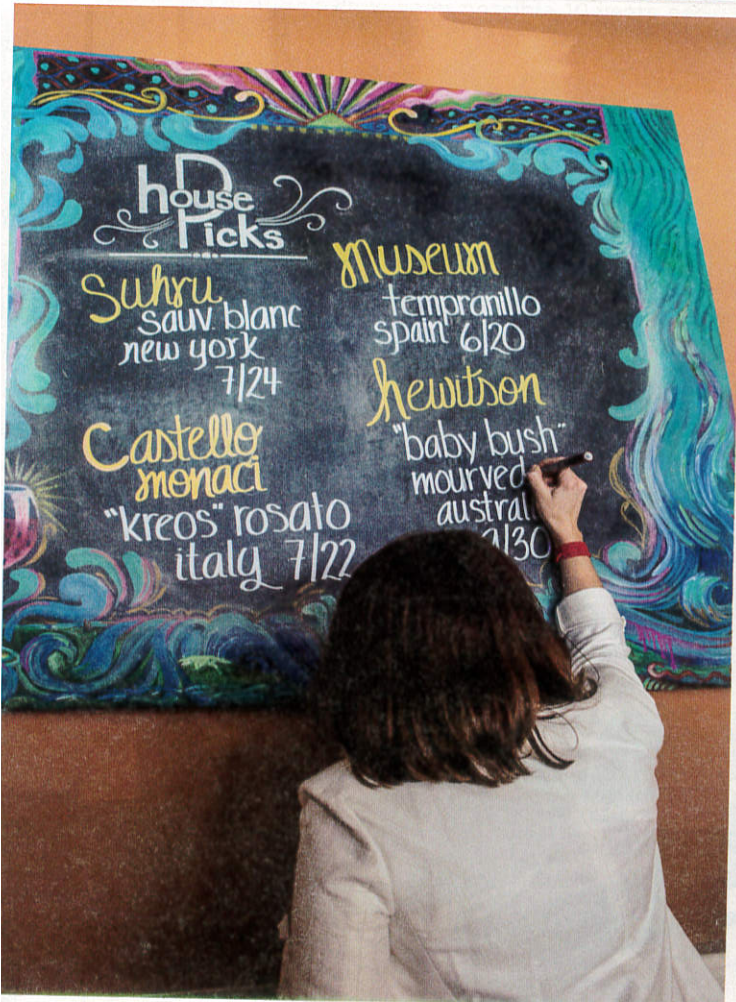 house
Picks
Suhru
sauv. blanc
new york
7/24
Castello
monaci
"kreos" rosato
italy 7/22
museum
tempranillo
spain 6/20
hewitson
"baby bush"
mourved
austral
/30